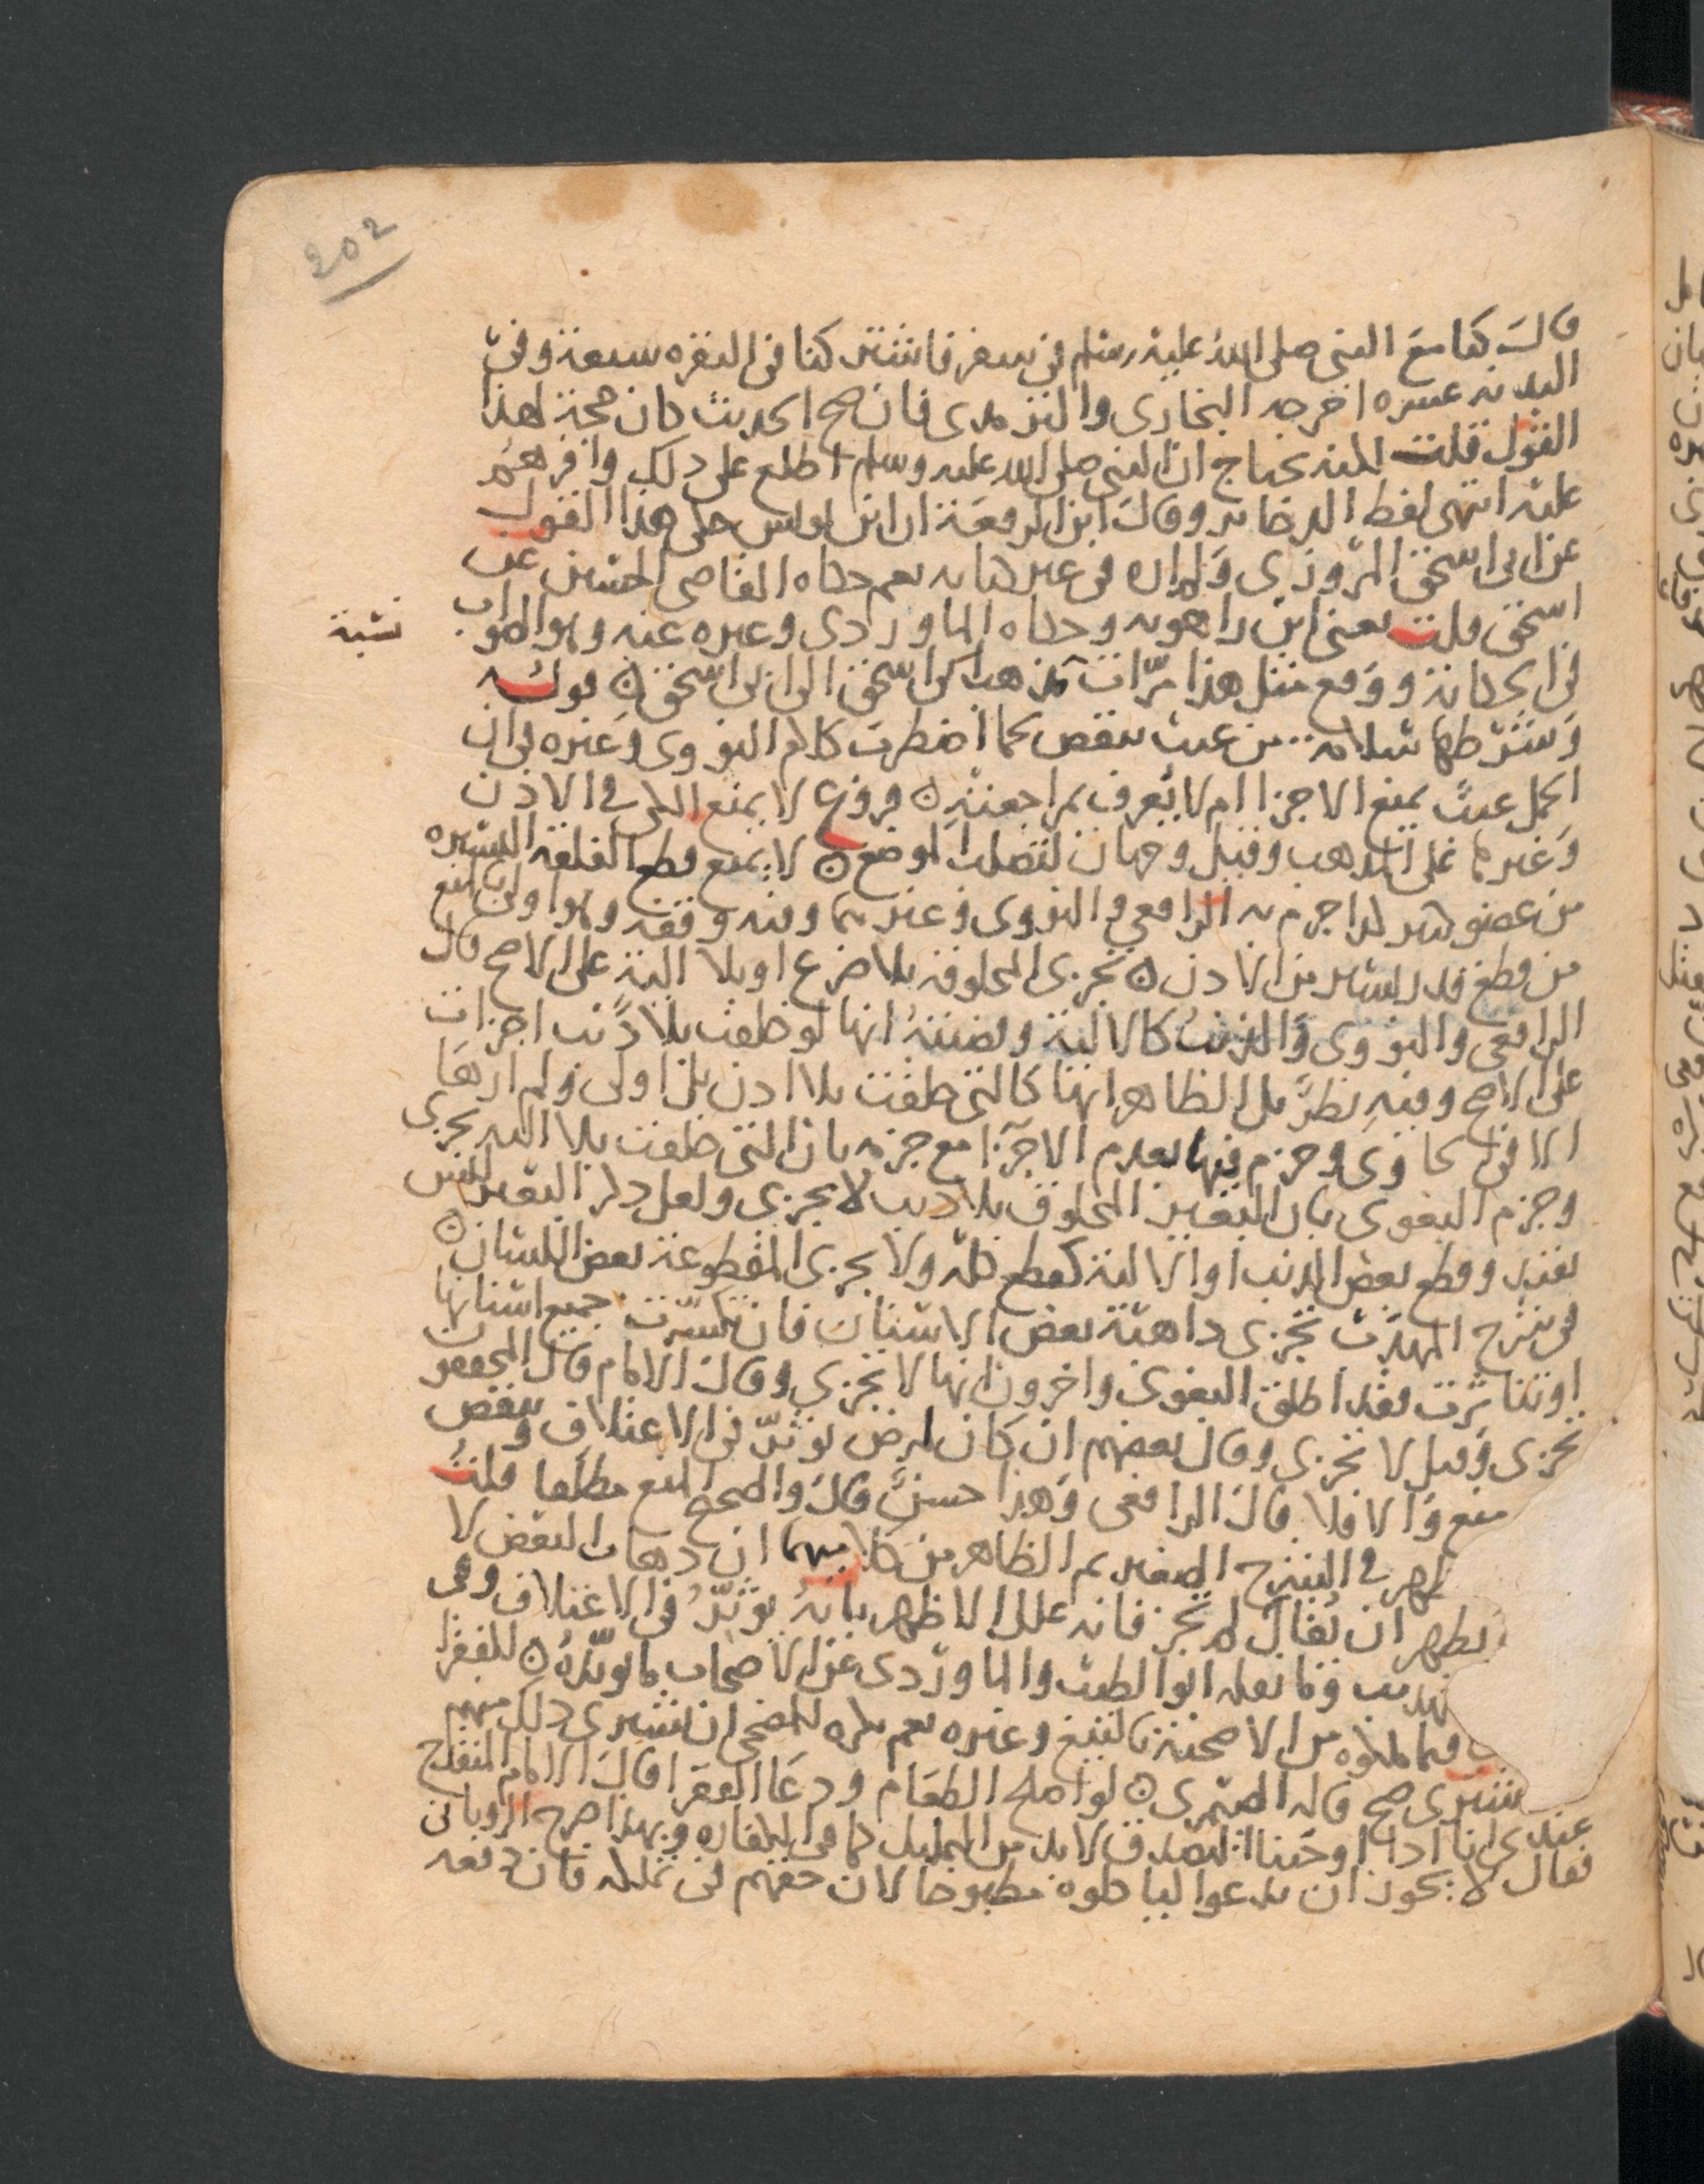 202
قال كنا مع النبي صلى الله عليه وسلم في سفر فاشتركنا في البقره سبعة وفي
البدنه عشره اخرجه البخاري والترمدي فان صح الحديث كان حجة لهذا
القول قلت لكنه يحتاج ان النبي صلى الله عليه وسلم اطلع على دلك واقرهم
عليه انتهى لفظ الدخاير وقال ابن الرفعة ان ابن يونس حكى هذا القول
عن ابي اسحق المروزي ولم اره في غير كتابه نعم حكاه القاضي الحسين عن
اسحق قلت يعني ابن راهويه وحكاه الماوردي وغيره عنه وهو الصواب
نسبة
في الحكاية ووقع مثل هذا مرات مذهب اسحق الى ابي اسحق ٥ قوله
وشرطها سلامة من عيب ينقص لحما اضطرب كلام النووي وغيره في ان
الحمل عيب يمنع الاجزا ام لا يعرف بمراجعته ٥ فروع لا يمنع الكي في الاذن
وغيرها على المدهب وقيل وجهان لتصلب الموضع ٥ لا يمنع قطع الفلقة اليسيره
من عضو كبير كدا جزم به الرافعي والنووي وغيرهما وفيه وقفه وهو اولى بالمنع
من قطع قدر يسير من الاذن ٥ تجزى المخلوقه بلا ضرع او بلا الية على الاصح قال
الرافعي والنووي والذنب كالالية وقضيته انها لو خلقت بلا ذنب اجزات
على الاصح وفيه نظر بل الظاهر انها كالتي خلقت بلا اذن بل اولى ولم ارها
الا في الحاوي وجزم فيها بعدم الاجزا مع جزمه بان التي خلقت بلا اليه تجزى
وجزم البغوي بان البعير المخلوق بلا ذنب لا يجزى ولعل ذكر البعير ليس
بقيد وقطع بعض الدنب او الالية كقطع كله ولا يجزى المقطوعة بعض اللسان ٥
في شرح المهذب تجزى داهبة بعض الاسنان فان كسرت جميع اسنانها
او تناثرت فقد اطلق البغوي واخرون انها لا تجزى وقال الامام قال المحققون
تجزى وقيل لا تجزى وقال بعضهم ان كان لمرض يوثر في الاعتلاف وينقص
منع والا فلا قال الرافعي وهذا حسن قال والصحيح المنع مطلقا قلت
في الشرح الصغير ثم الظاهر من كلامهما ان دهاب البعض لا
يظهر ان يقال لم تجز فانه علل الاظهر بانه يوثر في الاعتلاف وفي
وما نقله ابو الطيب والماوردي عن الاصحاب ما يويده ٥ للفقرا
فيما ملكوه من الاضحية بالبيع وغيره نعم يكره للمضحي ان يشتري دلك منهم
يشتري صح قاله الصيمري ٥ لو اصلح الطعام ودعا الفقرا قال الامام المنقدح
عندي انا ادا اوجبنا التصدق لا بد من التمليك كما في الكفاره وبهدا صرح الروياني
فقال لا يجوز ان يدعوا لياكلوه مطبوخا لان حقهم في تملكه فان دفعه